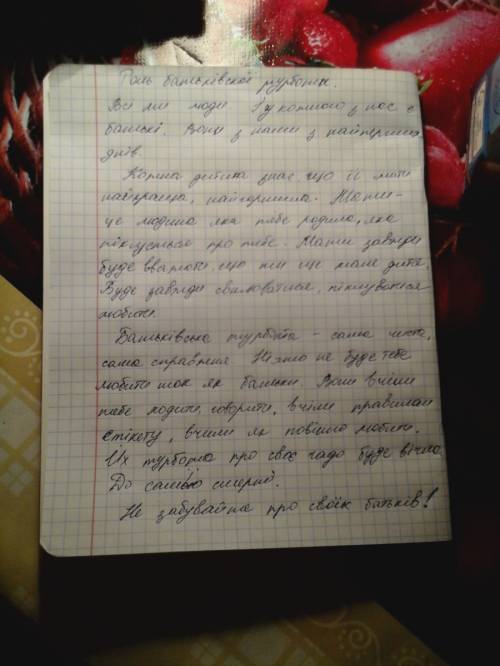 Роль батьківської турботи.
Всі ми люди І у кожного з нас є
батькі. Вони з нами з найперших
днів.
Кожна дитина знає, що її мати
найкраща, Мати -
це людина яка тебе родила, яка
піклується про тебе. Мати завжди
буде вважати, що ти ще мале дитя.
Буде завжди хвилюватися, піклуватися
любити.
Батьківська турбота - сама чиста,
сама справжня. Ніхто не буде тебе
любити так як батьки. Вони вчили
тебе ходити, говорити, вчили правилам
етікету, вчили як повішно любити.
Их турбота про своє чадо буде вічно.
До самої смерті.
Не забувайте про своїх батьків!